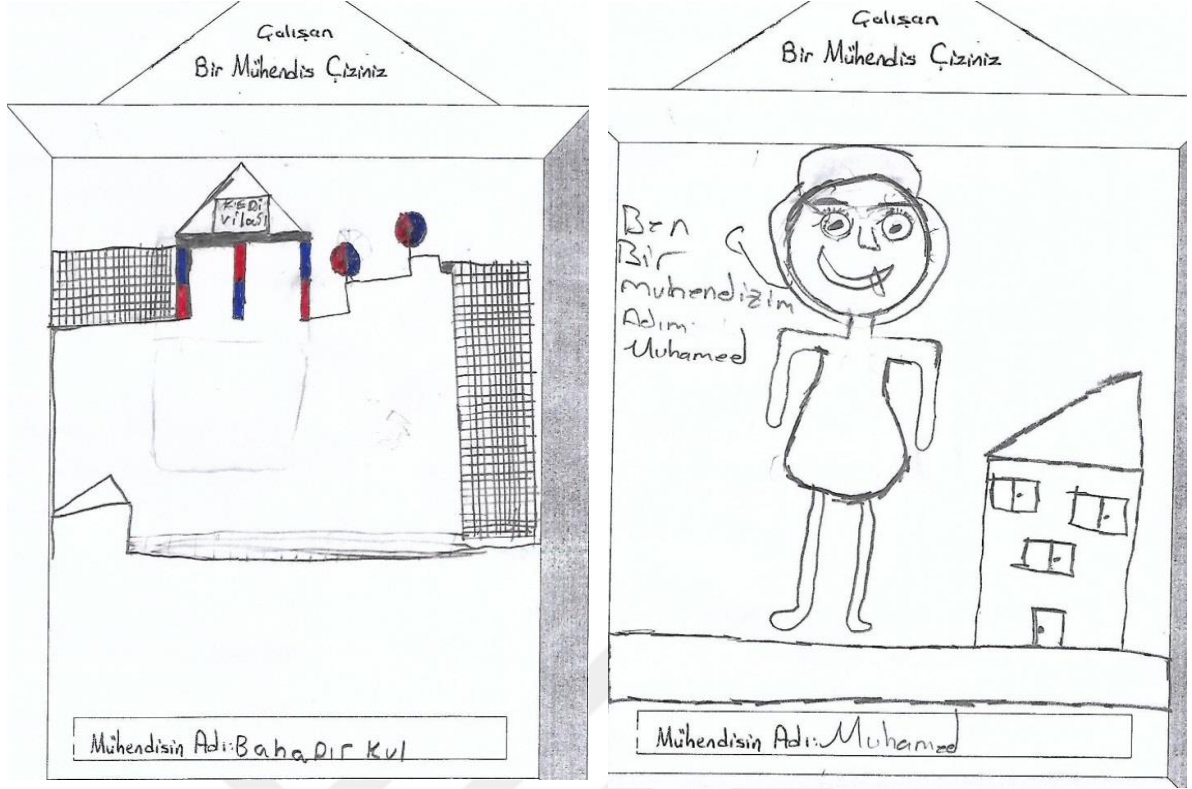 Çalışan
Bir Mühendis Çiziniz
KEDİ
VilaSı
Mühendisin Adı: BahaDır Kul
Çalışan
Bir Mühendis Çiziniz
Ben
Bir
muhendizim
Adım
Muhameed
Mühendisin Adı: Muhameed